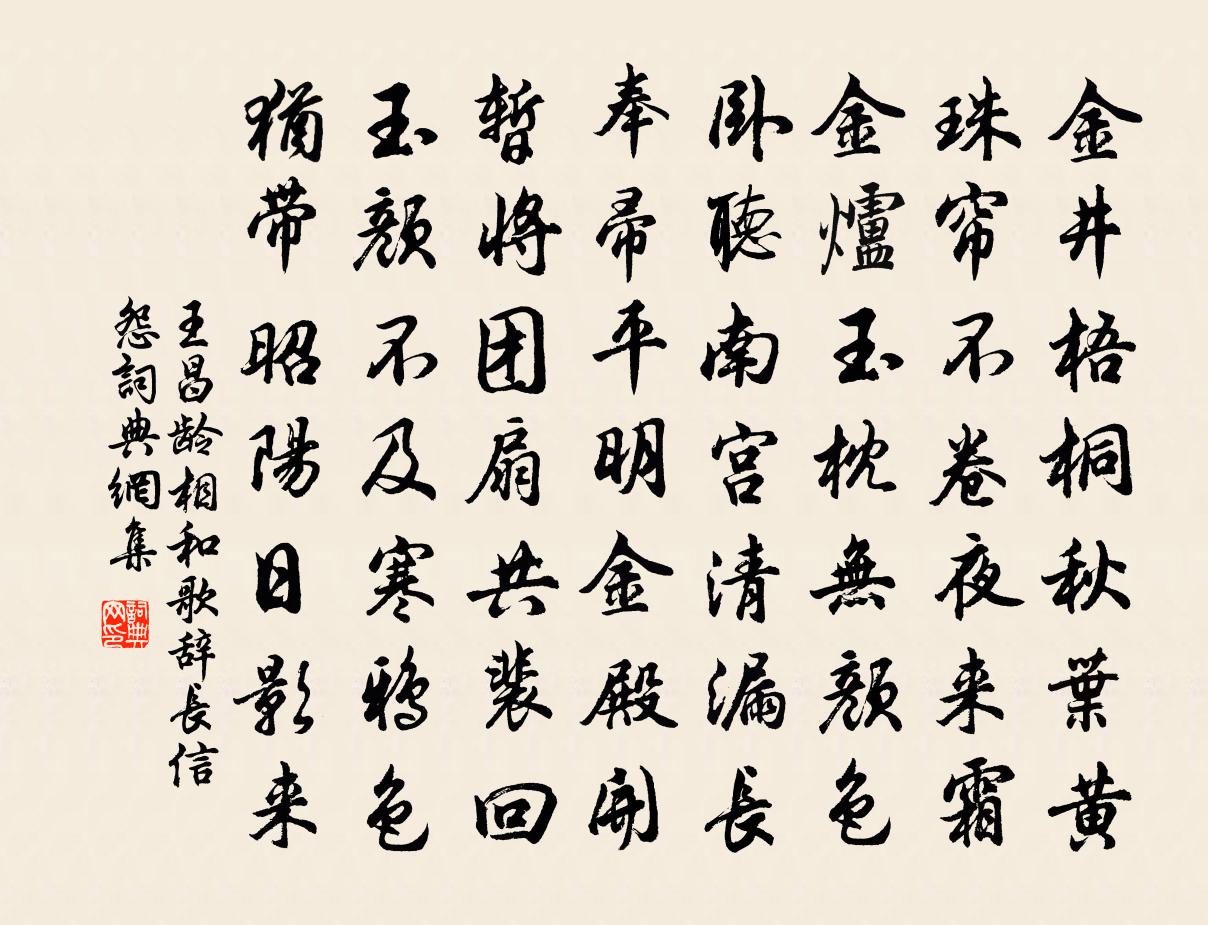 金井梧桐秋葉黄
珠帘不卷夜来霜
金爐玉枕無顔色
卧聽南宫清漏長
奉帚平明金殿開
暫將团扇共裴回
玉顔不及寒鴉色
猶带昭陽日影来
王昌龄相和歌辞長信
怨詞典網集
詞典
网印